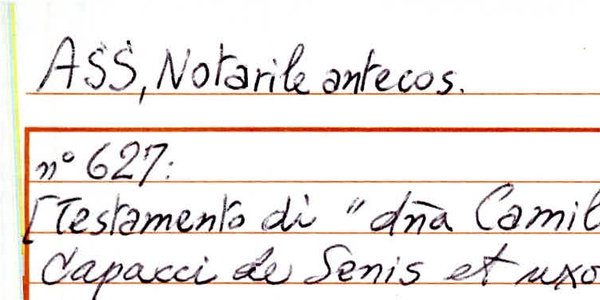 ASS, Notarile antecos.
n° 627:
[Testamento di "dña Camil
Capacci de Senis et uxo